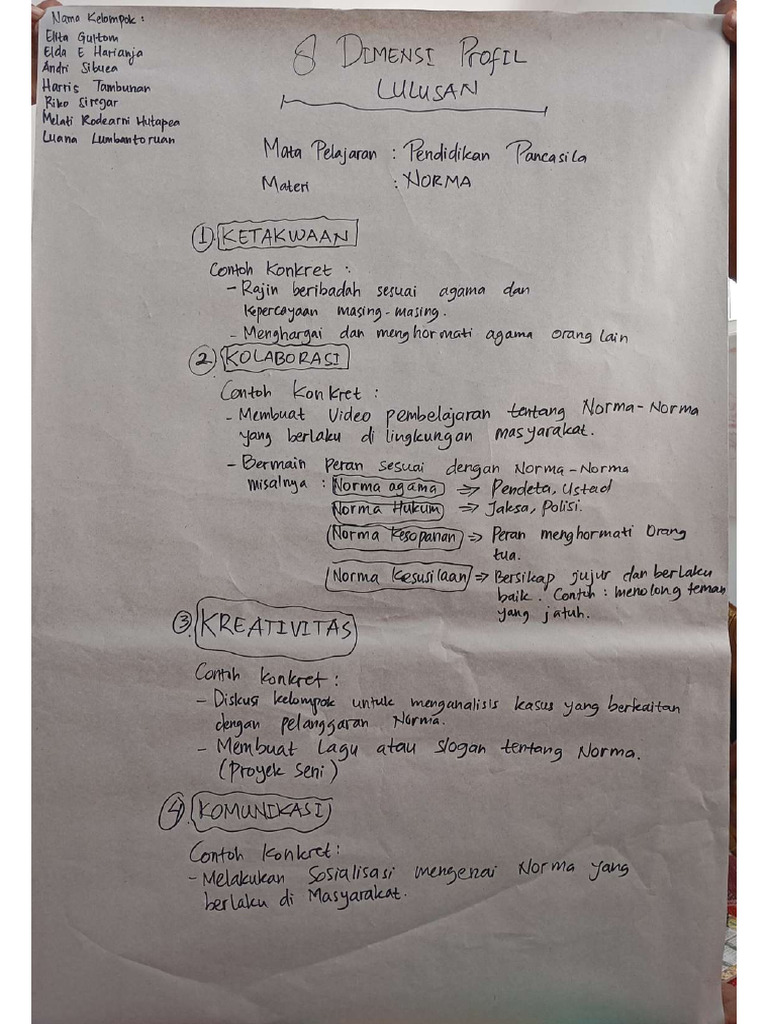 Nama Kelompok :
Elita Gultom
Elda E Harianja
Andri Sibuea
Harris Tambunan
Riko Siregar
Melati Rodearni Hutapea
Luana Lumbantoruan
8 DIMENSI PROFIL
LULUSAN
Mata Pelajaran : Pendidikan Pancasila
Materi : NORMA
1 KETAKWAAN
Contoh Konkret :
- Rajin beribadah sesuai agama dan
kepercayaan masing-masing.
- Menghargai dan menghormati agama orang lain
2 KOLABORASI
Contoh Konkret :
- Membuat Video pembelajaran tentang Norma-Norma
yang berlaku di lingkungan masyarakat.
- Bermain peran sesuai dengan Norma-Norma
misalnya : Norma agama => Pendeta, Ustad
Norma Hukum => Jaksa, Polisi.
Norma Kesopanan => Peran menghormati Orang
tua.
Norma Kesusilaan => Bersikap jujur dan berlaku
baik. Contoh : menolong teman
yang jatuh.
3 KREATIVITAS
Contoh konkret :
- Diskusi kelompok untuk menganalisis kasus yang berkaitan
dengan pelanggaran Norma.
- Membuat Lagu atau slogan tentang Norma.
(Proyek Seni)
4 KOMUNIKASI
Contoh konkret :
- Melakukan Sosialisasi mengenai Norma yang
berlaku di Masyarakat.